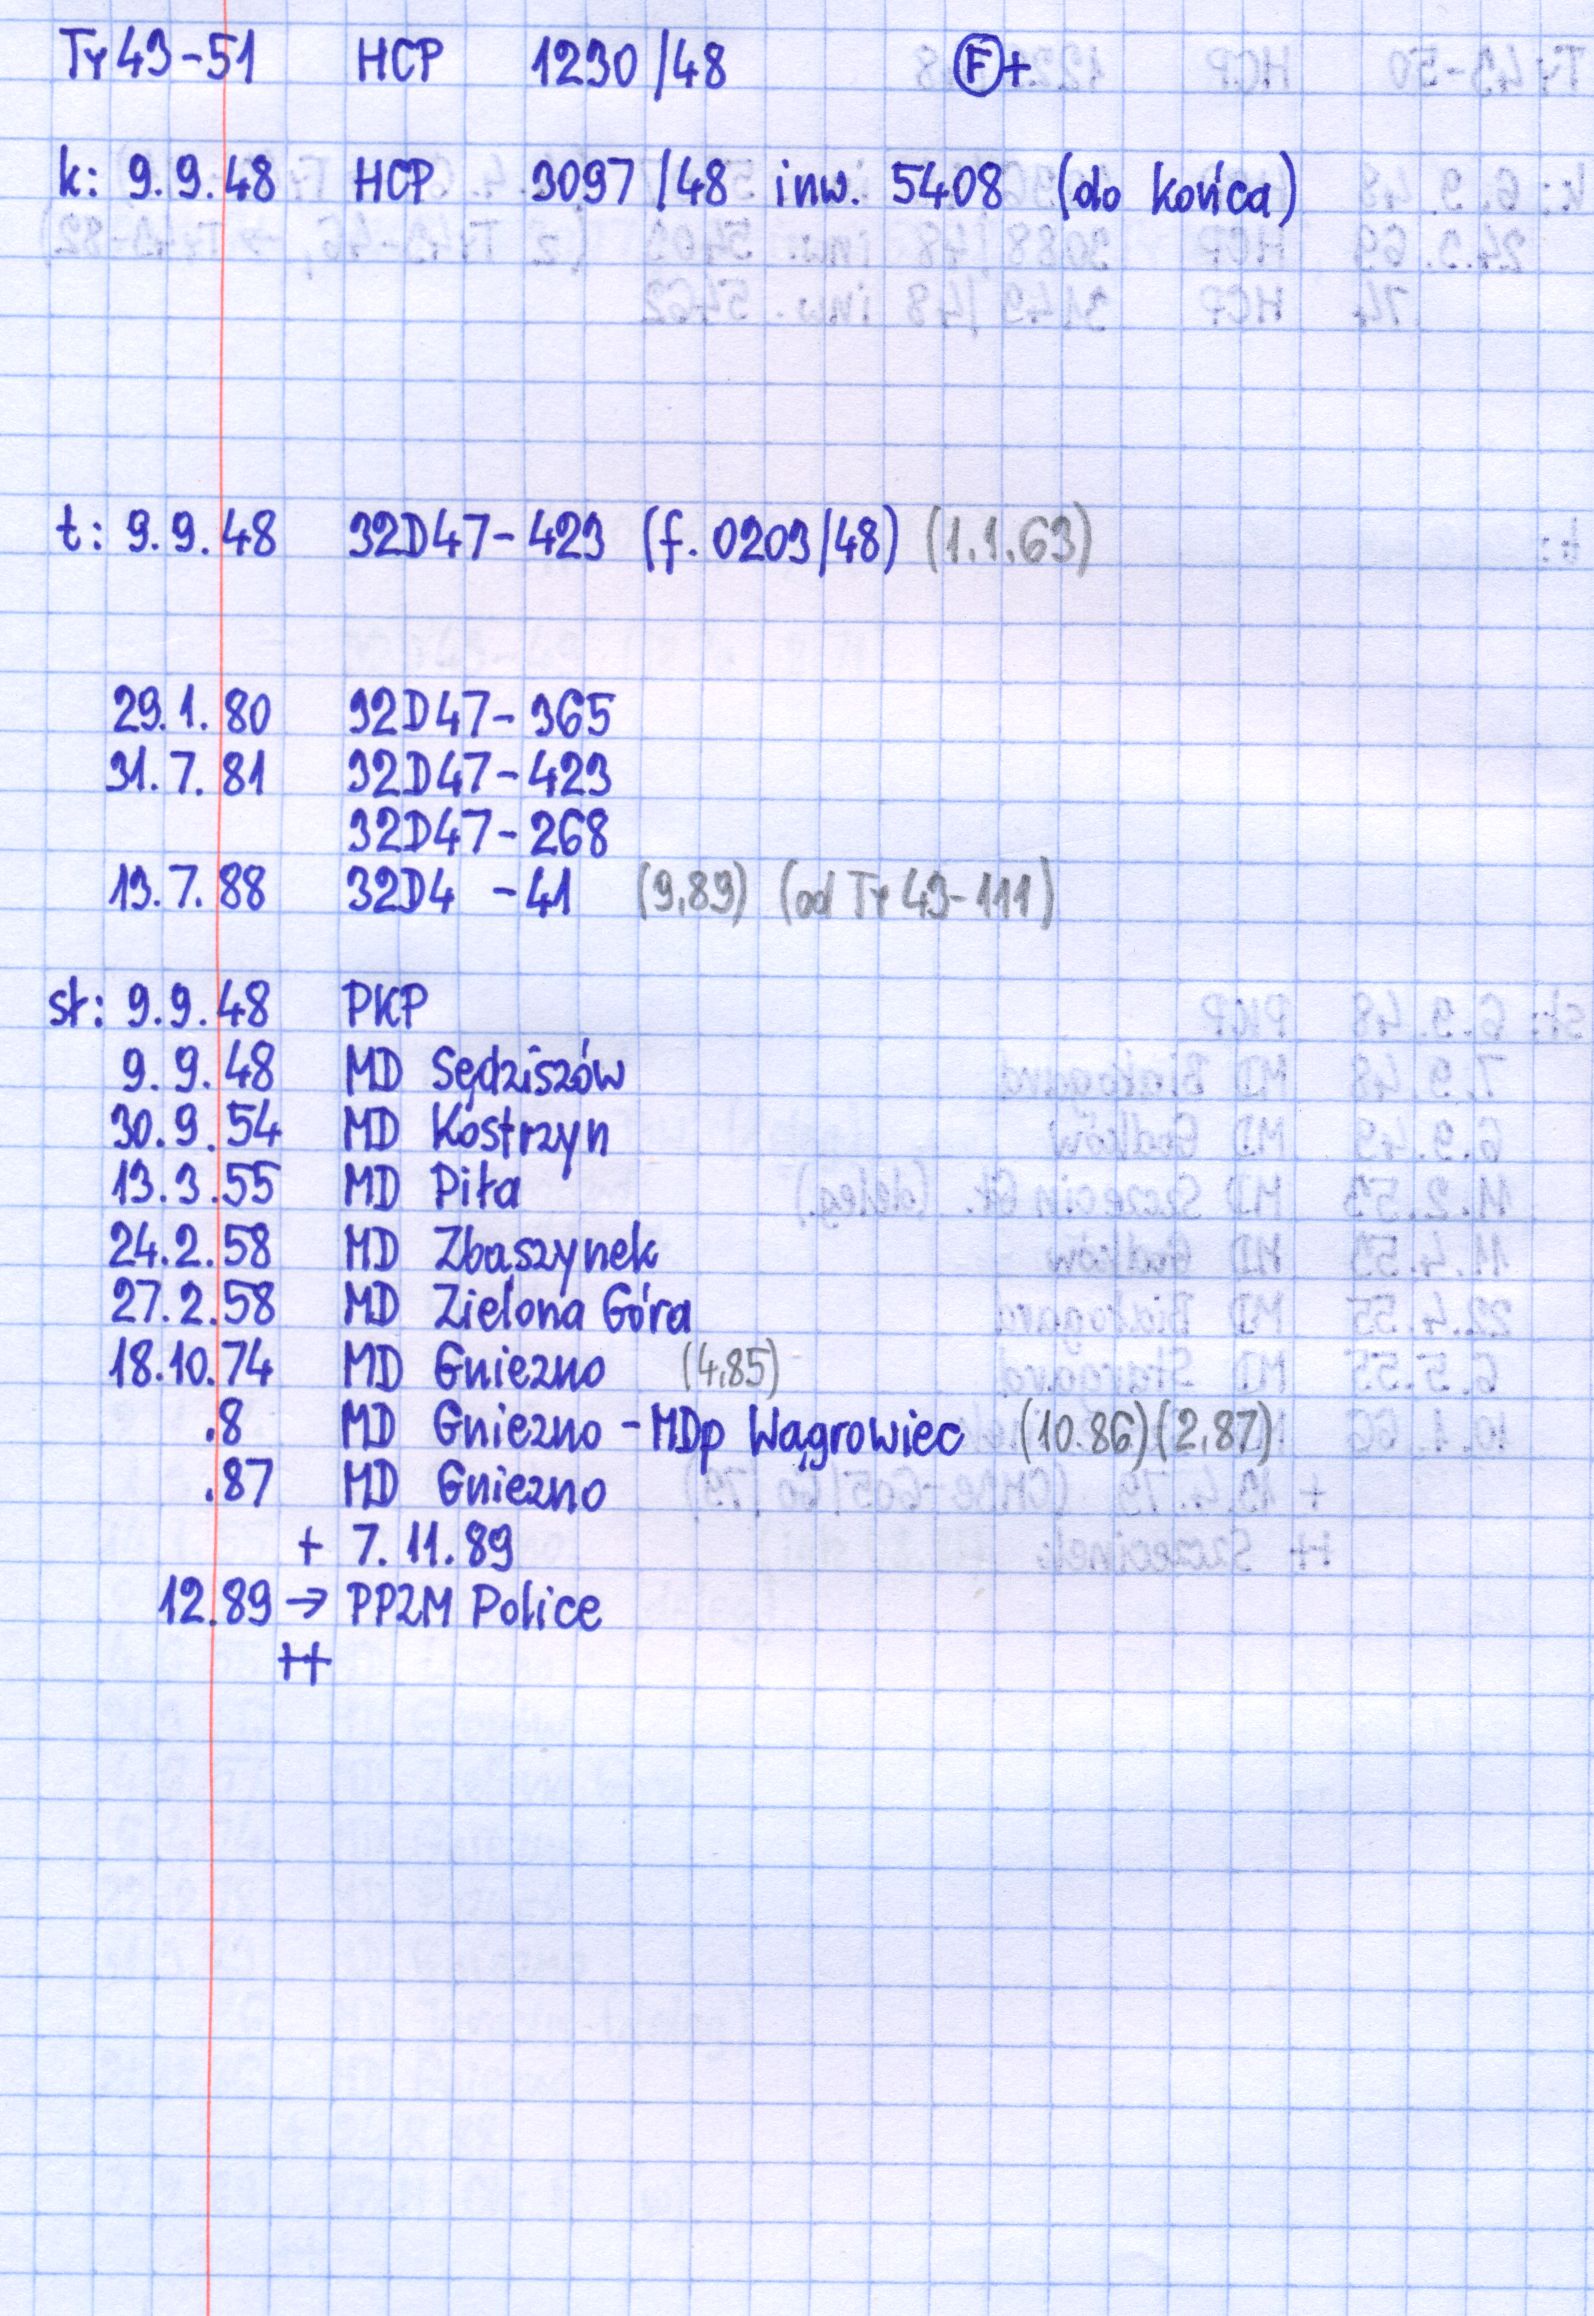 Ty43-51 HCP 1230/48 F+
k: 9.9.48 HCP 3097/48 inw. 5408 (do końca)
t: 9.9.48 32D47-423 (f. 0203/48) (1.1.63)
29.1.80 32D47-365
31.7.81 32D47-423
32D47-268
13.7.88 32D4 -41 (9.89) (od Ty43-111)
st: 9.9.48 PKP
9.9.48 MD Sędziszów
30.9.54 MD Kostrzyn
13.3.55 MD Piła
24.2.58 MD Zbąszynek
27.2.58 MD Zielona Góra
18.10.74 MD Gniezno (4.85)
.8 MD Gniezno - MDp Wągrowiec (10.86) (2.87)
.87 MD Gniezno
+ 7.11.89
12.89 → PPZM Police
++